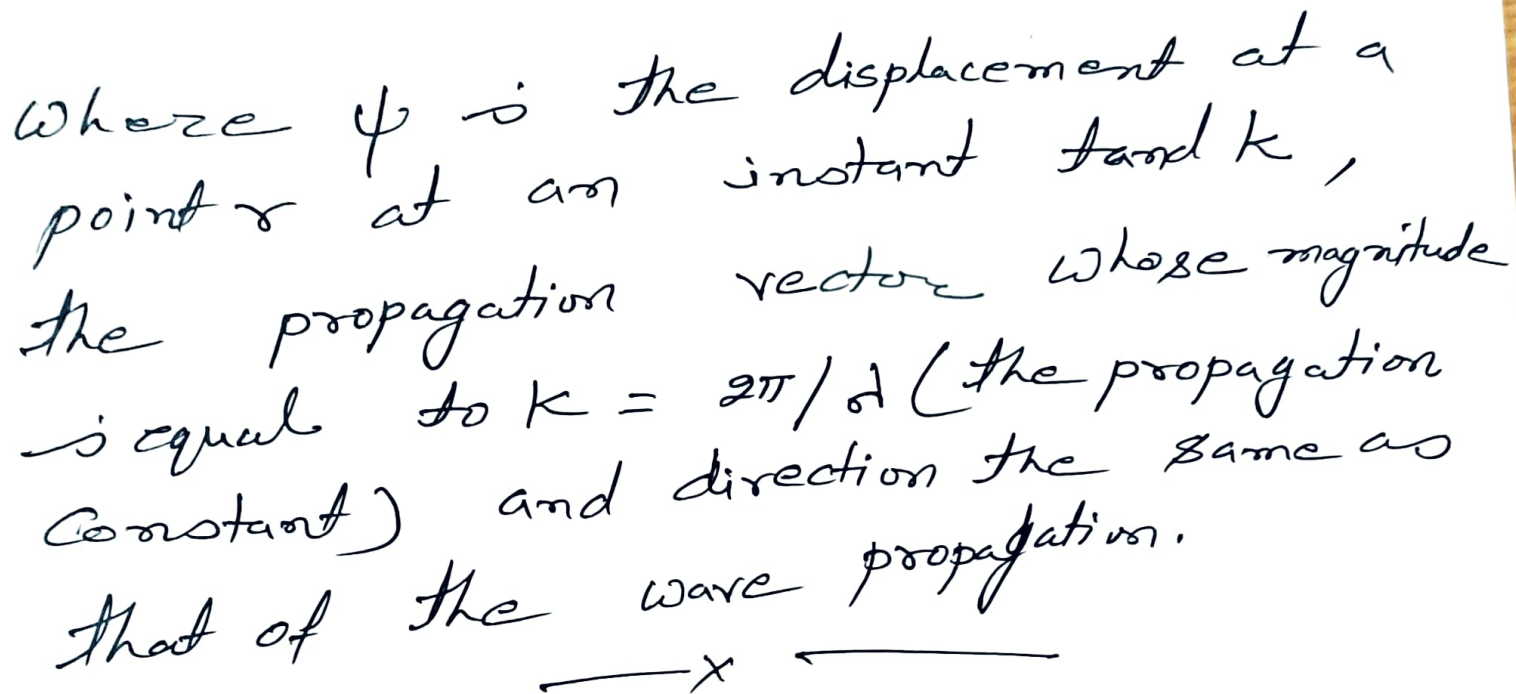 where ψ is the displacement at a
point r at an instant t and k,
the propagation vector whose magnitude
is equal to k = 2π/λ (the propagation
Constant) and direction the same as
that of the wave propagation.
—x—